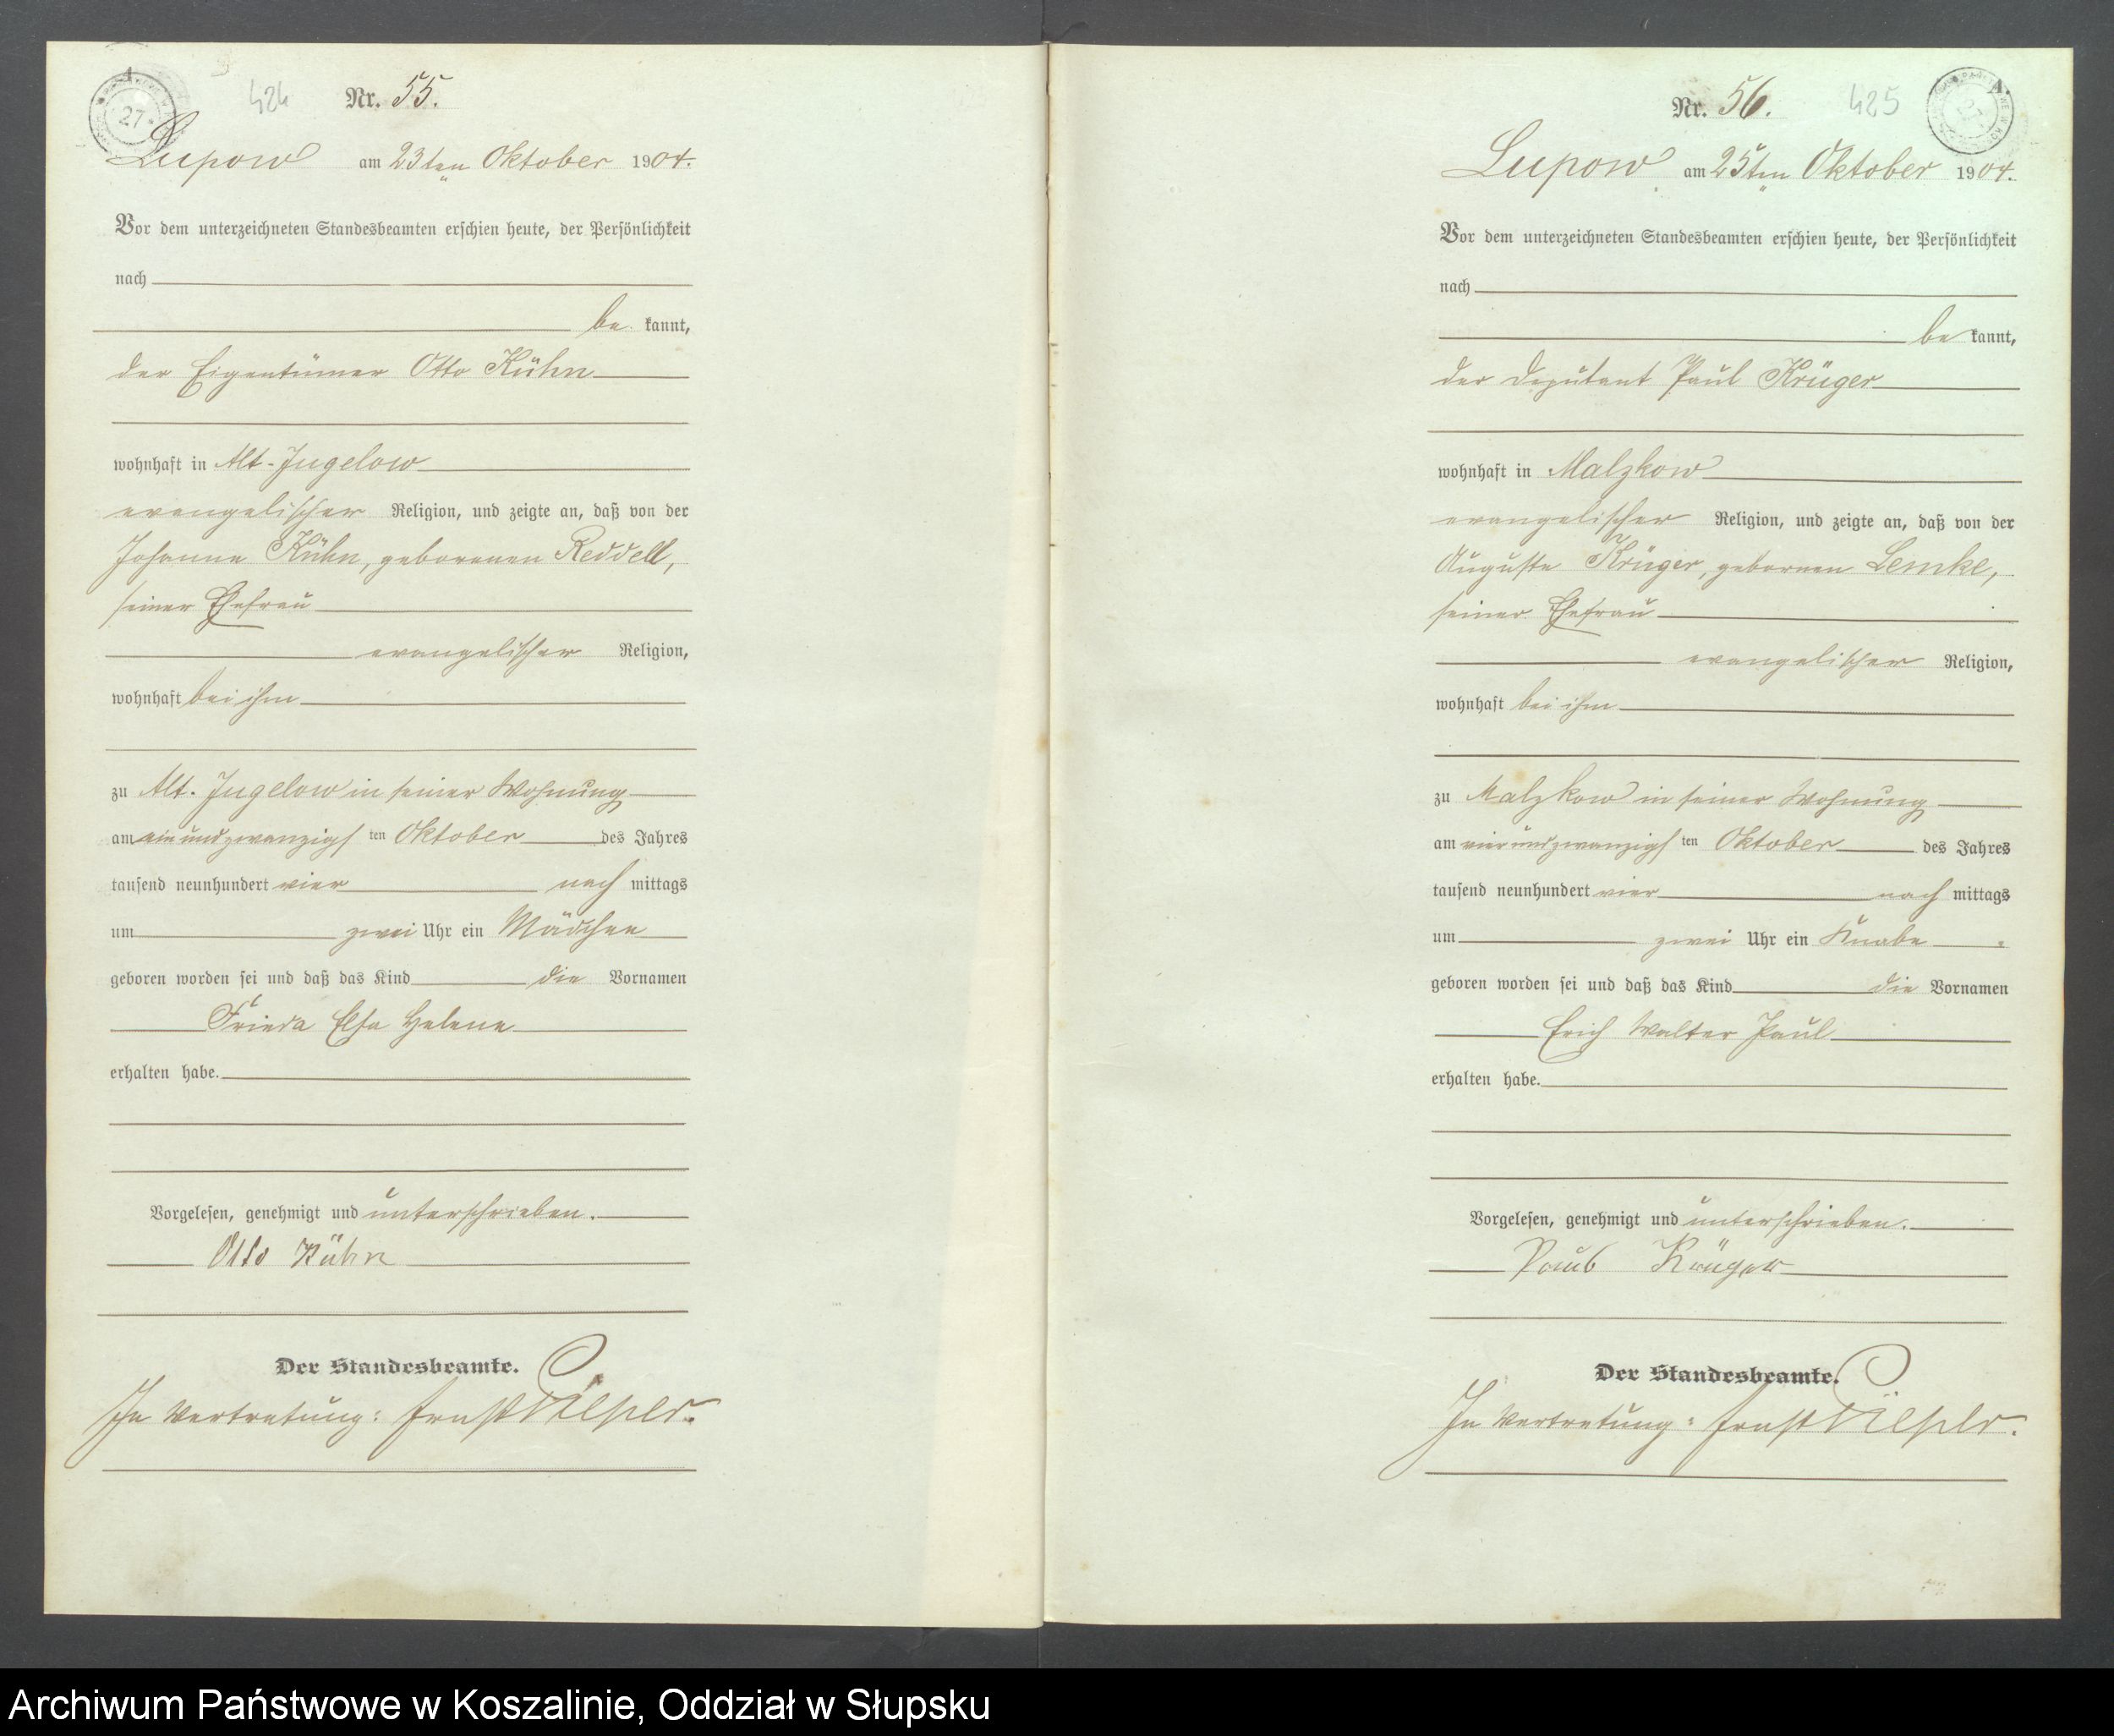 424 Nr. 55.
27
Lupow am 23ten Oktober 1904.
Vor dem unterzeichneten Standesbeamten erschien heute, der Persönlichkeit
nach
be kannt,
der Eigentümer Otto Kühn
wohnhaft in Alt-Jugelow
evangelischer Religion, und zeigte an, daß von der
Johanna Kühn, geborenen Reddell,
seiner Ehefrau
evangelischer Religion,
wohnhaft bei ihm
zu Alt-Jugelow in seiner Wohnung
am einundzwanzigsten Oktober des Jahres
tausend neunhundert vier nach mittags
um zwei Uhr ein Mädchen
geboren worden sei und daß das Kind die Vornamen
Frieda Elsa Helene
erhalten habe.
Vorgelesen, genehmigt und unterschrieben.
Otto Kühn
Der Standesbeamte.
In Vertretung: Ernst
Nr. 56. 425
Lupow am 25ten Oktober 1904.
Vor dem unterzeichneten Standesbeamten erschien heute, der Persönlichkeit
nach
be kannt,
der Deputant Paul Krüger
wohnhaft in Malzkow
evangelischer Religion, und zeigte an, daß von der
Auguste Krüger, gebornen Lemke,
seiner Ehefrau
evangelischer Religion,
wohnhaft bei ihm
zu Malzkow in seiner Wohnung
am vierundzwanzigsten Oktober des Jahres
tausend neunhundert vier nach mittags
um zwei Uhr ein Knabe
geboren worden sei und daß das Kind die Vornamen
Erich Walter Paul
erhalten habe.
Vorgelesen, genehmigt und unterschrieben.
Paul Krüger
Der Standesbeamte.
In Vertretung: Ernst
Archiwum Państwowe w Koszalinie, Oddział w Słupsku